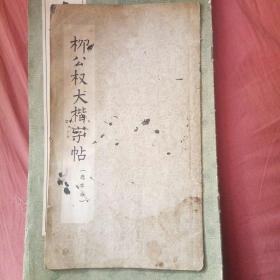 柳公权大楷字帖